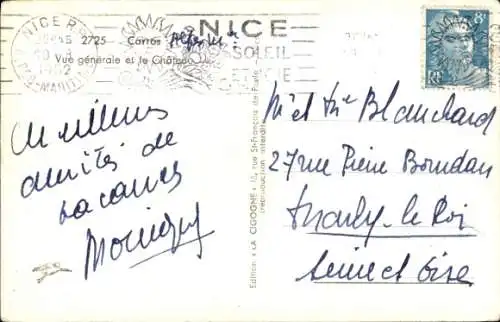 NICE RP
1952
ALPES-MARITIMES
2725 Carros Alpes Mmes
Vue générale et le Château
NICE
SOLEIL
8F
RF
Meilleures
amitiés de
vacances
Monique
Edition "LA CIGOGNE"
St-François de Paule
(reproduction interdite)
Mr et Me Blanchard
27 rue Pierre Bourdan
Marly-le-Roi
Seine et Oise